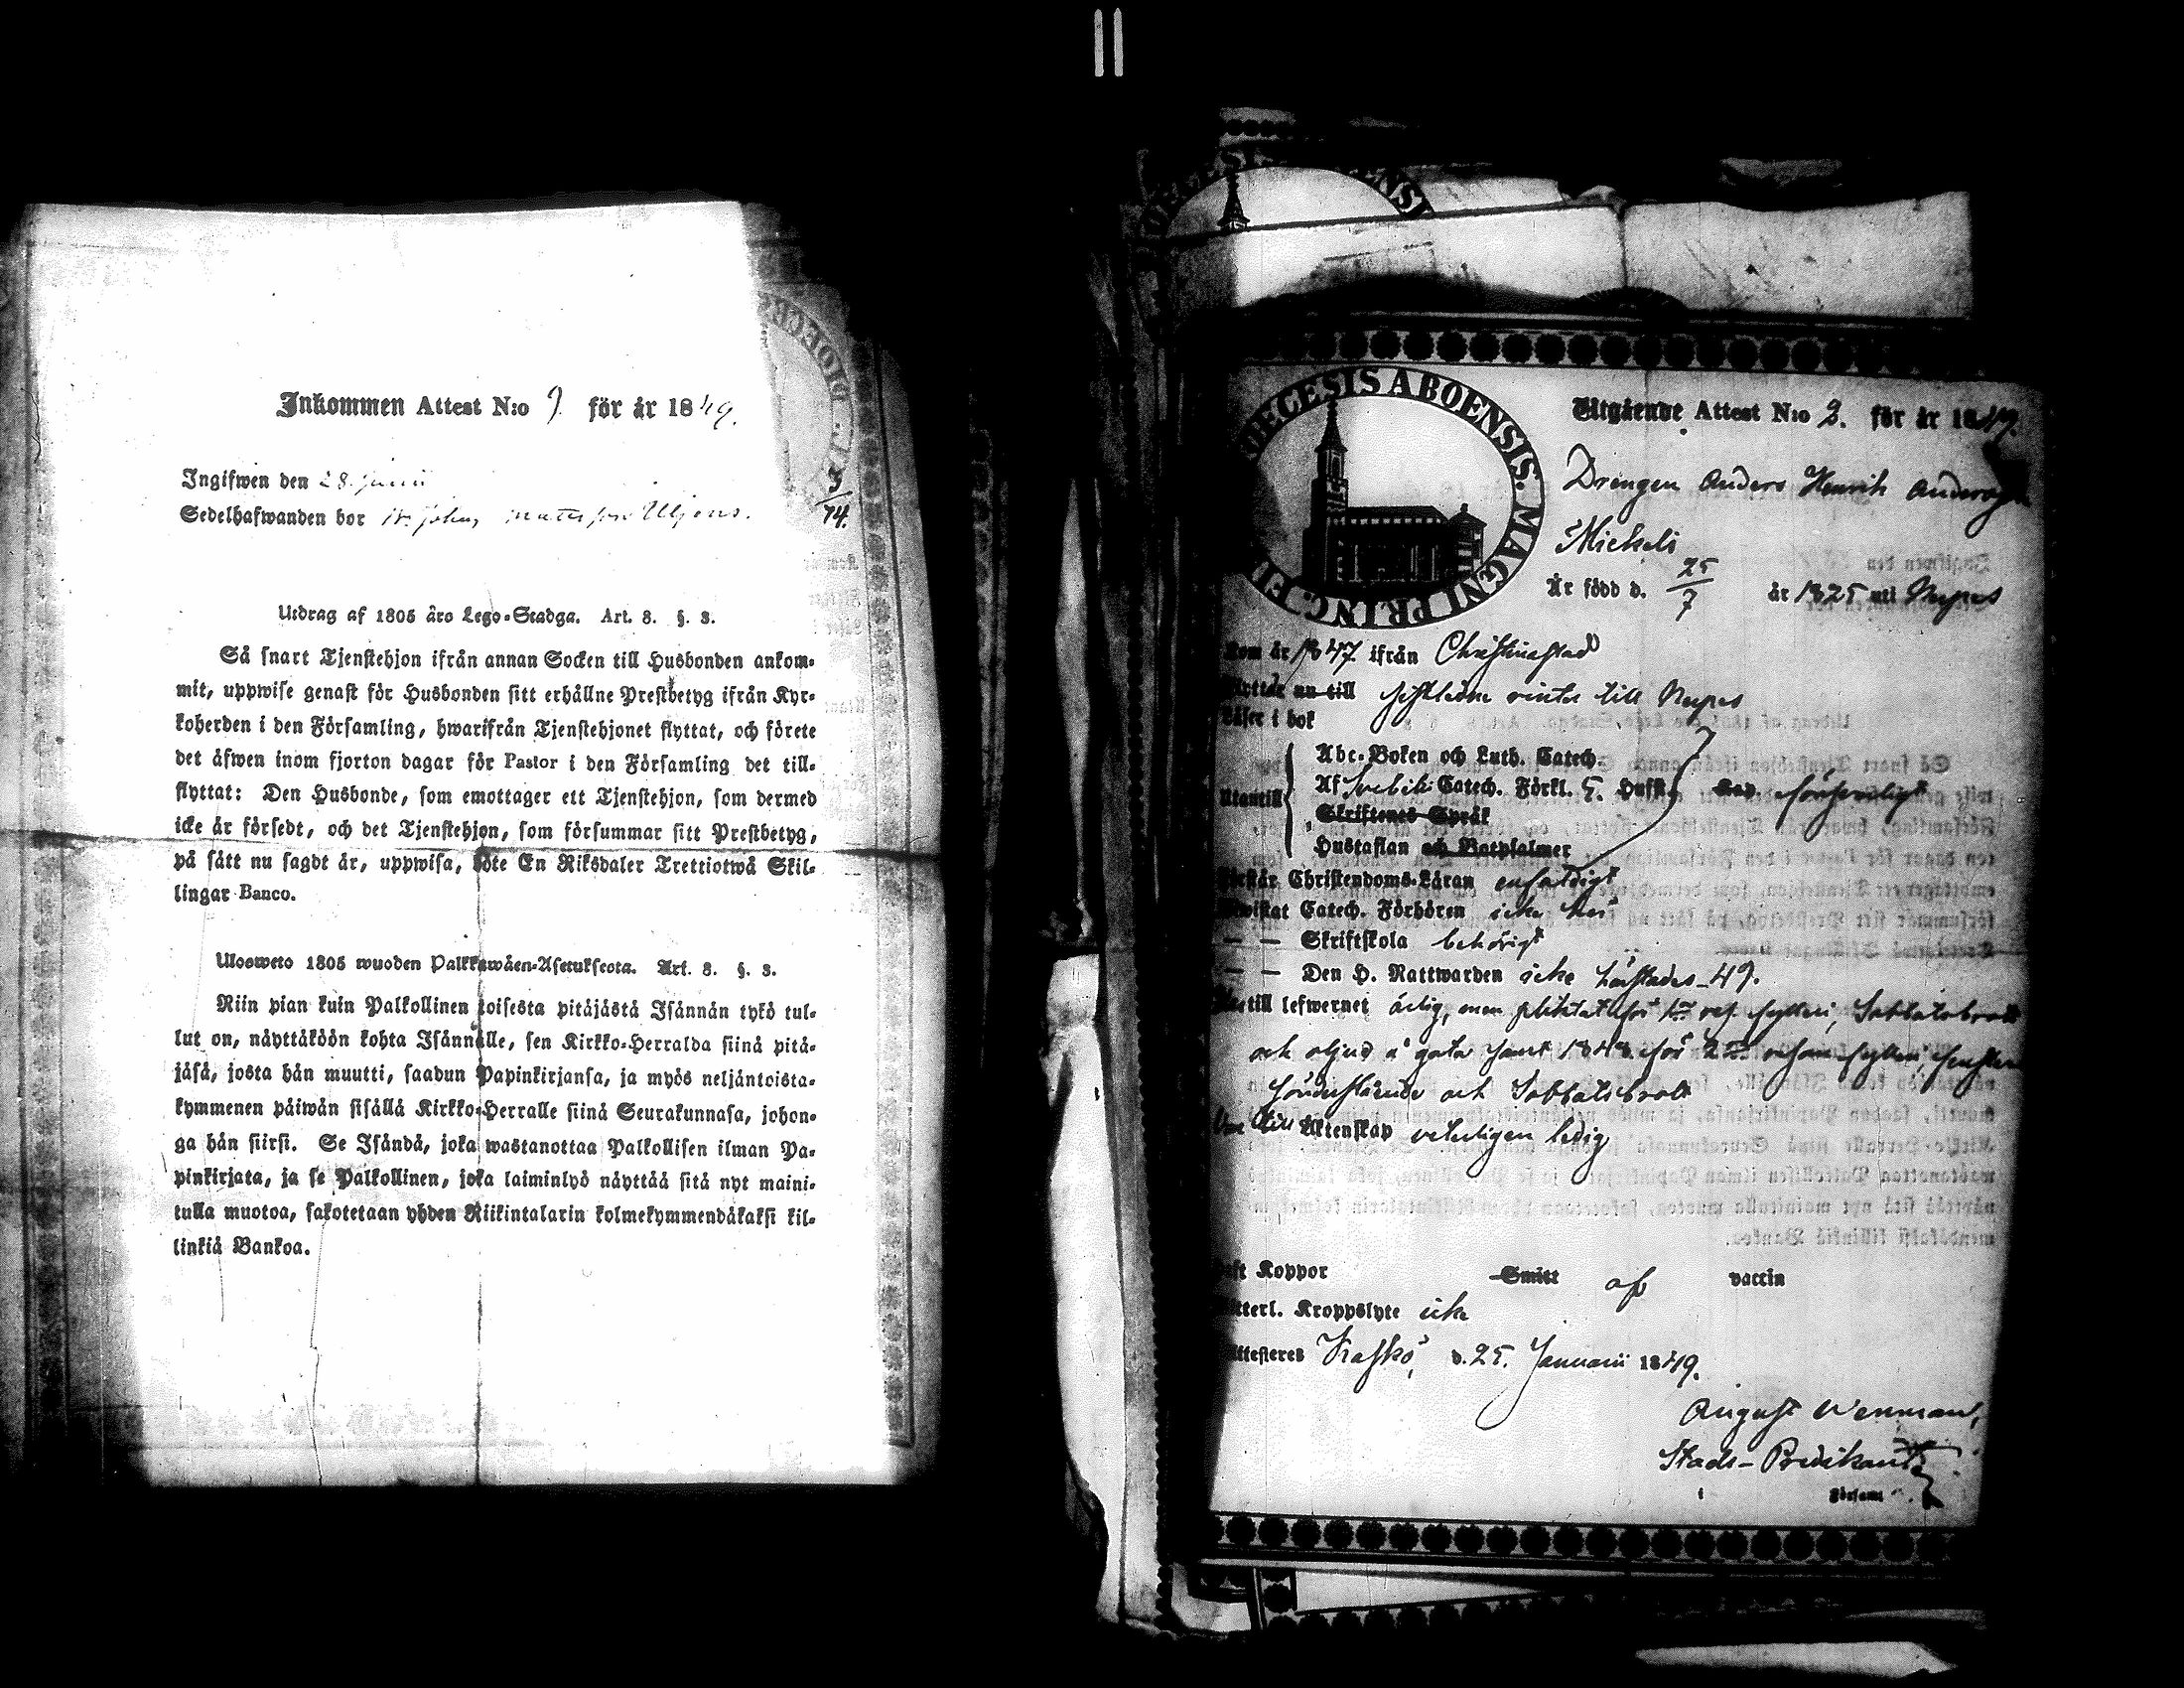 Inkommen Attest N:o 9. för år 1849.
Ingifwen den 28. Junii
Sedelhafwanden bor
3
74.
Utdrag af 1805 års Lego-Stadga. Art. 8. §. 3.
Så snart Tjenstehjon ifrån annan Socken till Husbonden ankom-
mit, uppwise genast för Husbonden sitt erhållne Prestbetyg ifrån Kyr-
koherden i den Församling, hwarifrån Tjenstehjonet flyttat, och förete
det äfwen inom fjorton dagar för Pastor i den Församling det till-
flyttat: Den Husbonde, som emottager ett Tjenstehjon, som dermed
icke är försedt, och det Tjenstehjon, som försummar sitt Prestbetyg,
på sått nu sagdt är, uppwisa, böte En Riksdaler Trettiotwå Skil-
lingar Banco.
Ulosweto 1805 wuoden Palkkawäen-Asetuksesta. Art. 8. §. 3.
Niin pian kuin Palkollinen toisesta pitäjästä Isännän tykö tul-
lut on, näyttäköön kohta Isännälle, sen Kirkko-Herralda siinä pitä-
jäsä, josta hän muutti, saadun Papinkirjansa, ja myös neljäntoista-
kymmenen päiwän sisällä Kirkko-Herralle siinä Seurakunnasa, johon-
ga hän siirsi. Se Isändä, joka wastanottaa Palkollisen ilman Pa-
pinkirjata, ja se Palkollinen, joka laiminlyö näyttää sitä nyt maini-
tulla muotoa, sakotetaan yhden Riikintalarin kolmekymmendäkaksi kil-
linkiä Bankoa.
DIOECESIS ABOENSIS. MAGNI PRINC. FI
Utgående Attest N:o 2. för år 1849.
Drengen Anders Henrik Andersson
Mickels
Är född d. 25/7 år 1825 uti Nerpes
Kom år 1847 ifrån Christinestad
Flyttar nu till sistledne vinter till Nerpes
Läser i bok
Abc-Boken och Luth. Catech.
Utantill Af Svebilii Catech. Förkl. 5. Hufst. Kap. försvarligt
Skriftenes Språk
Hustaflan och Botpsalmer
Förstår Christendoms-Läran enfaldigt
Bewistat Catech. Förhören icke här
— — Skriftskola behörigt
— — Den H. Nattwarden icke 49.
till lefwernet ärlig, men pliktat för 1sta res. fylleri, Sabbatsbrott
och oljud å gata samt 1848 för 2dra resan fylleri,
och Sabbatsbrott
Är till Äktenskap veterligen ledig
Haft Koppor Smitt af vaccin
Ytterl. Kroppslyte icke
Attesteres Kaskö, d. 25. Januarii 1849.
August Wenman,
Stads-Predikant
i Församl.